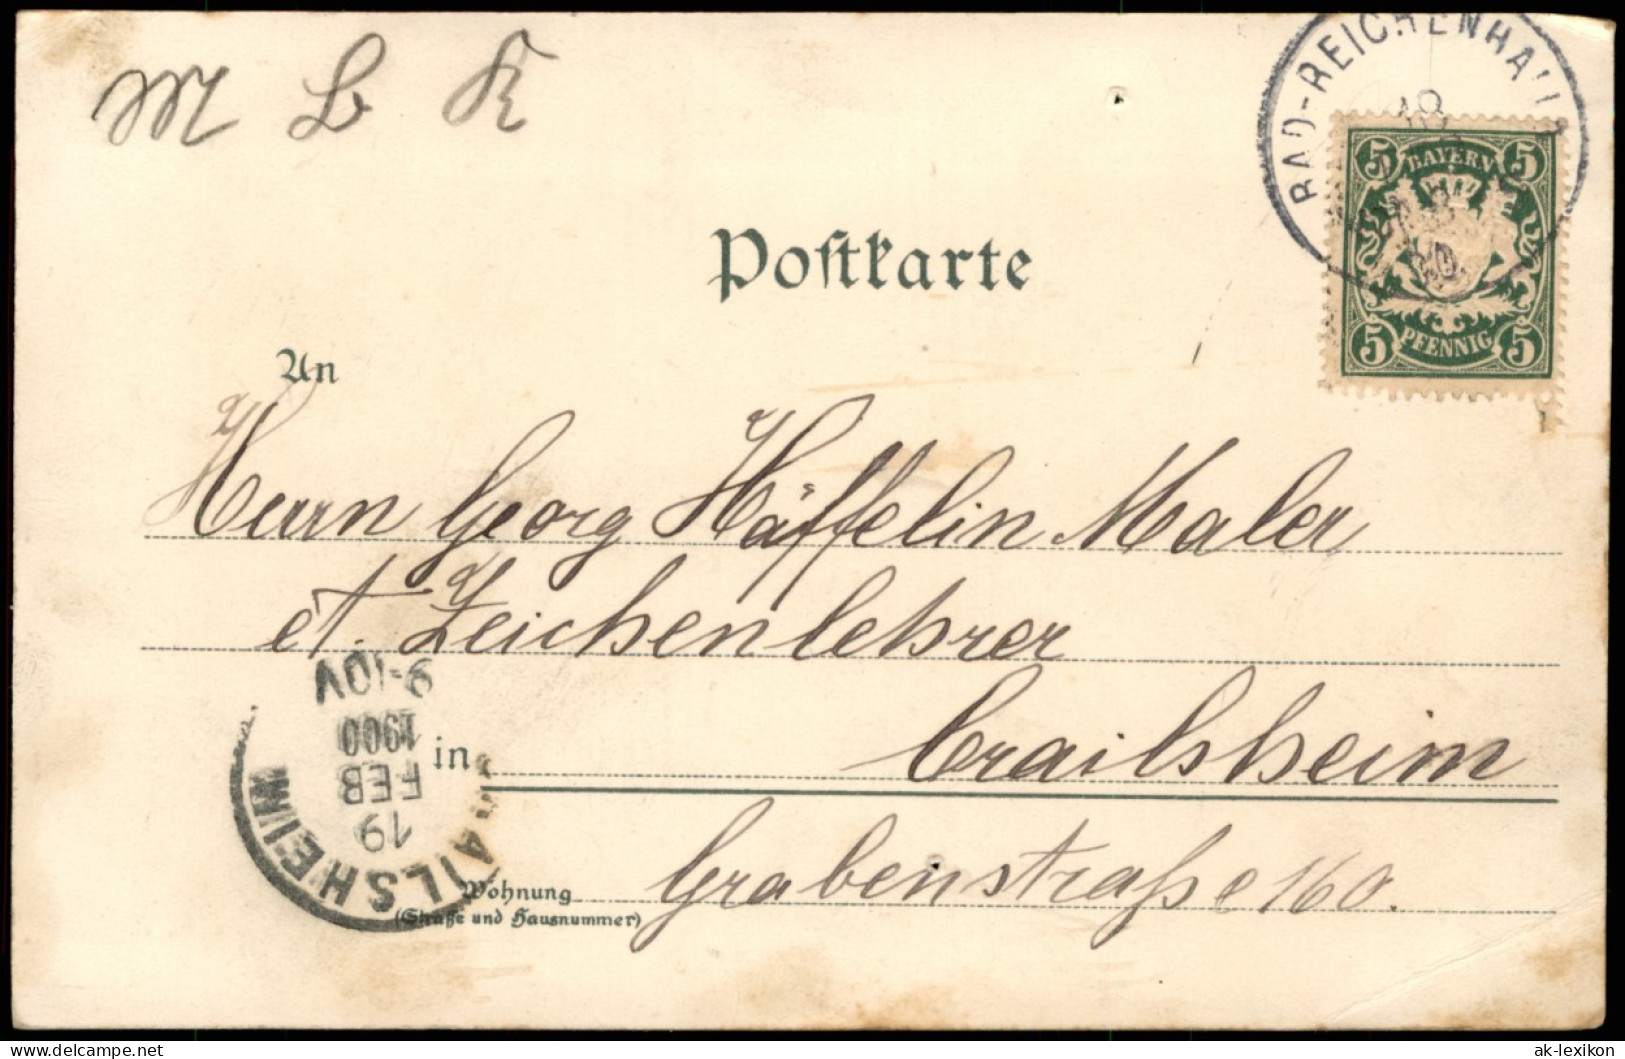 M L K
BAD-REICHENHALL
18
5 BAYERN 5
5 PFENNIG 5
Postkarte
An
Herrn Georg Häffelin Maler
et. Zeichenlehrer
in Crailsheim
CRAILSHEIM
19
FEB
1900
9-10V
Wohnung Grabenstraße 160.
(Straße und Hausnummer)
delcampe.net
ak-lexikon